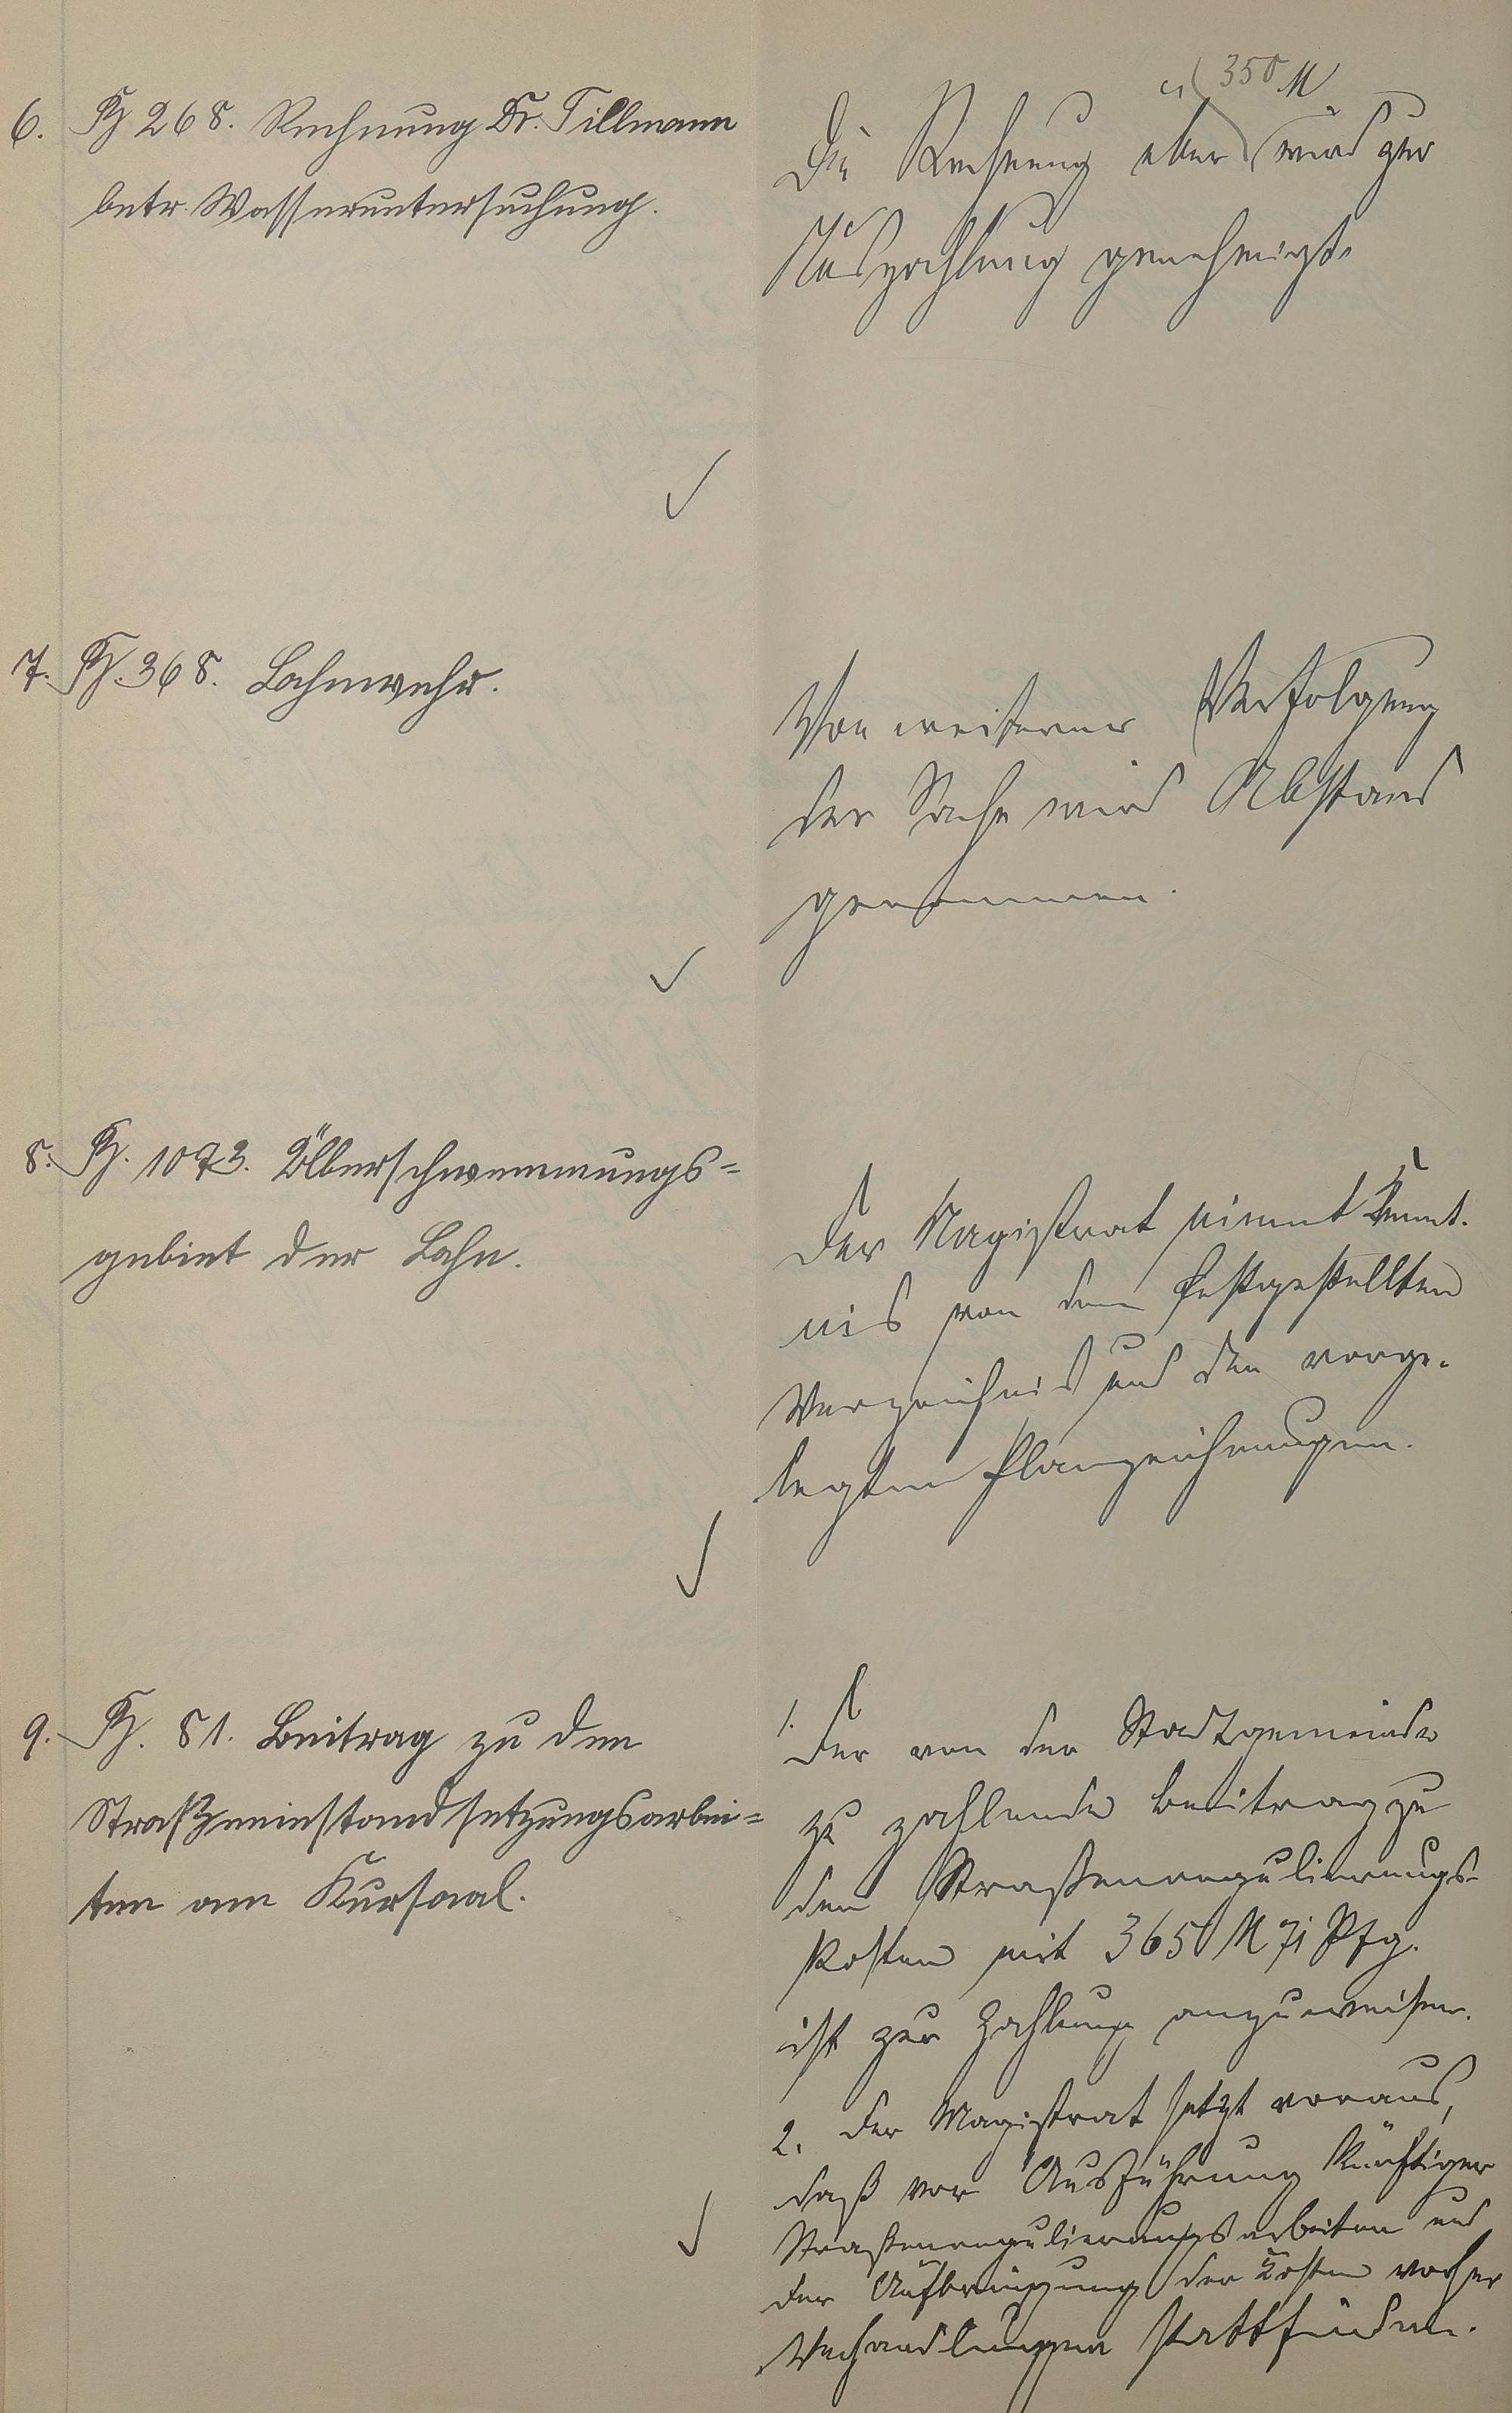 6. Tg 268. Rechnung Dr. Tillmann
betr. Wasseruntersuchung.
350 M
Die Rechnung über wird zur
Auszahlung genehmigt.
7. Tg. 368. Lahnwehr.
Von weiterer Verfolgung
der Sache wird Abstand
genommen.
8. Tg. 1073. Überschwemmungs=
gebiet der Lahn.
Der Magistrat nimmt Kennt-
nis von dem festgestellten
Verzeichnis und den vorge-
legten Planzeichnungen.
9. Tg. 81. Beitrag zu den
Straßeninstandsetzungsarbei=
ten am Kursaal.
1. Der von der Stadtgemeinde
zu zahlende Beitrag zu
den Straßenregulierungs-
kosten mit 365 M 71 Pfg.
ist zur Zahlung anzuweisen.
2. Der Magistrat setzt voraus,
daß vor Ausführung künftiger
Straßenregulierungsarbeiten und
der Aufbringung der Kosten vorher
Verhandlungen stattfinden.